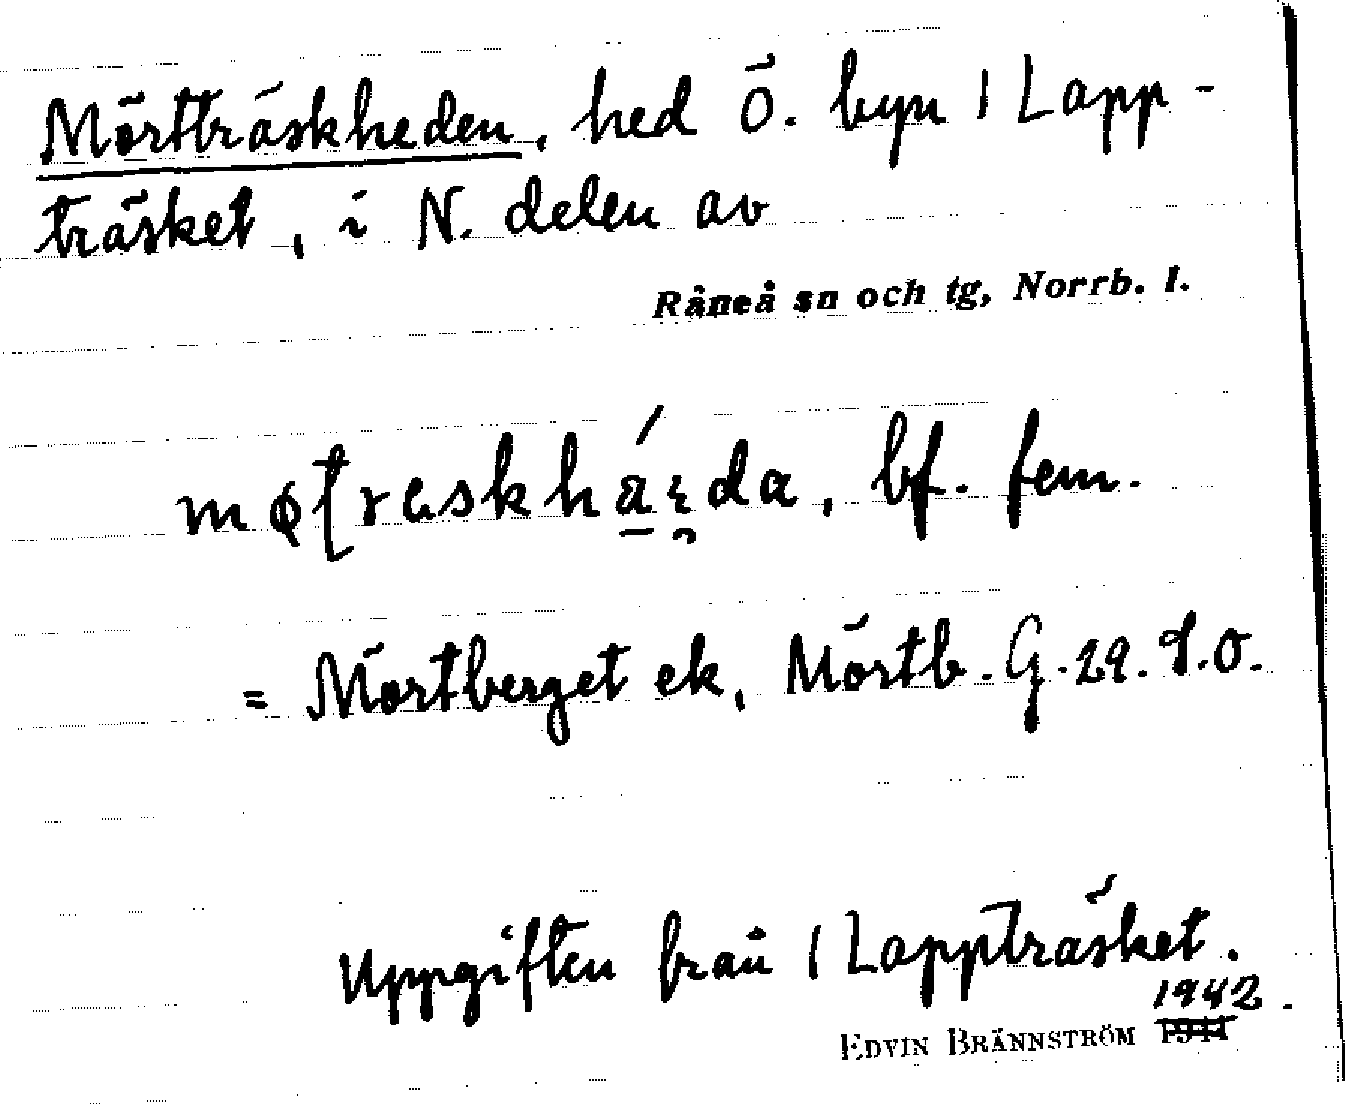 Mörtträskheden, hed Ö. byn 1 Lapp-
träsket, i N. delen av
Råneå sn och tg, Norrb. l.
bf. fem.
= Mörtberget ek, Mörtb. G. 29. S.O.
Uppgiften från 1 Lappträsket.
1942.
EDVIN BRÄNNSTRÖM 1941